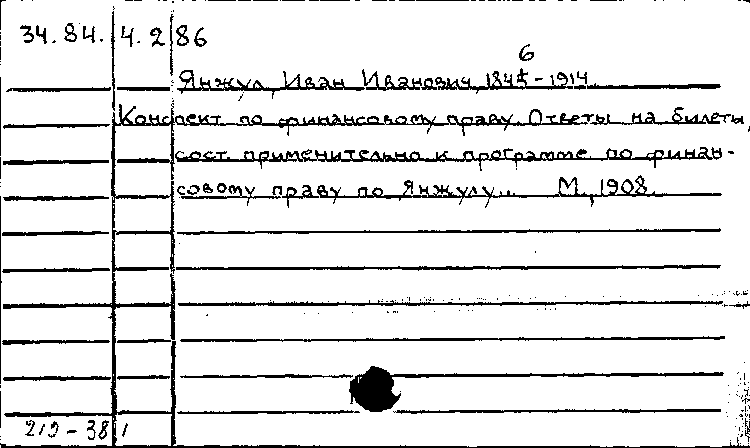 34.84.4.2 86
6
Янжул, Иван Иванович, 1845-1914.
Конспект по финансовому праву. Ответы на билеты,
сост. применительно к программе по финан-
совому праву по Янжулу.. М., 1908.
219-38/1